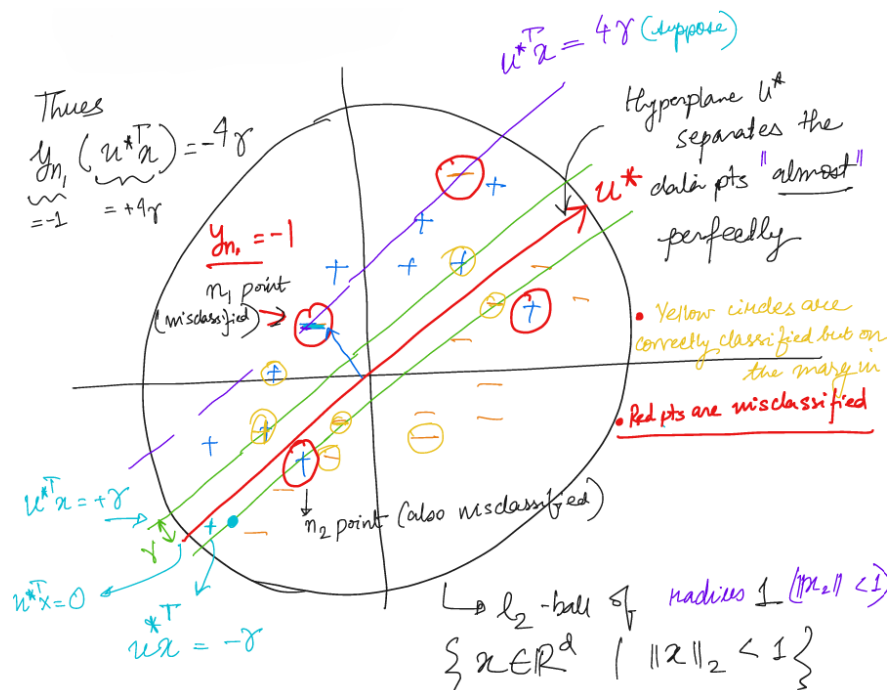 u*ᵀx = 4γ (suppose)
Thues
yₙ₁ (u*ᵀx) = -4γ
= -1 = +4γ
Hyperplane u*
separates the
data pts "almost"
perfectly
u*
yₙ₁ = -1
n₁ point
(misclassified)
• Yellow circles are
correctly classified but on
the margin
• Red pts are misclassified
u*ᵀx = +γ
γ
n₂ point (also misclassified)
u*ᵀx = 0
u*ᵀx = -γ
l₂-ball of radius 1 (‖x₂‖ < 1)
{ x ∈ ℝᵈ | ‖x‖₂ < 1 }